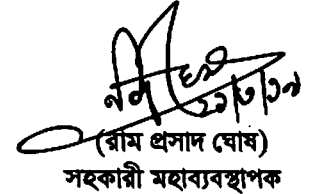 (রাম প্রসাদ ঘোষ)
সহকারী মহাব্যবস্থাপক